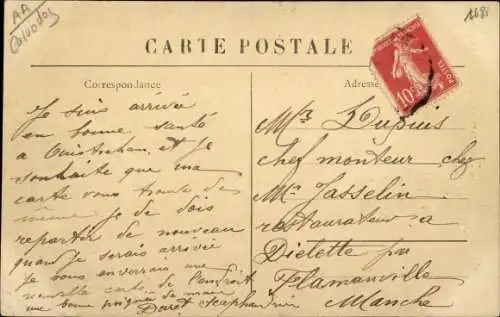 AA
Calvados
1681
CARTE POSTALE
Correspondance
Adresse
10c
POSTES
Je suis arrivée
en bonne santé
a Ouistreham et je
souhaite que ma
carte vous trouve de
meme je de dois
repartir de nouveau
quand je serais arrivée
je vous enverrais une
nouvelle carte de l'endroit
une bonne poignée de main
Doret Scaphandrier
Mr Dupuis
chef monteur chez
Mr Jasselin
restaurateur a
Dielette par
Flamanville
Manche